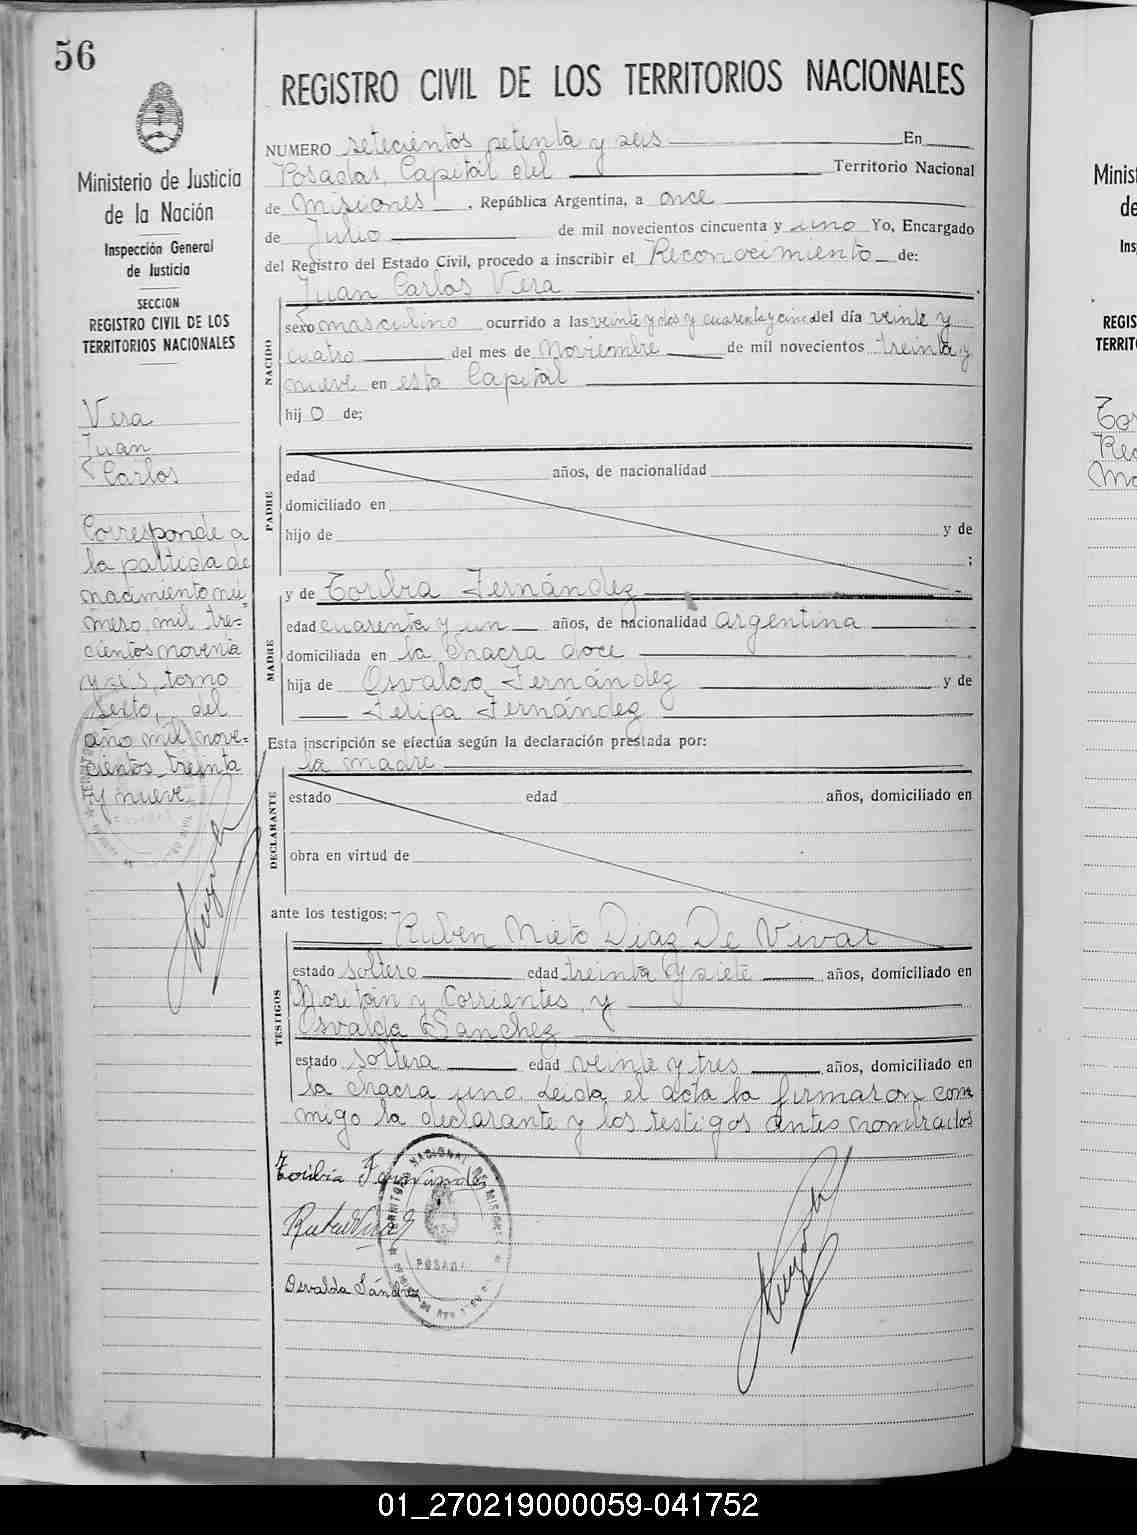 56
Ministerio de Justicia
de la Nación
Inspección General
de Justicia
SECCION
REGISTRO CIVIL DE LOS
TERRITORIOS NACIONALES
Vera
Juan
Carlos
Corresponde a
la partida de
nacimiento nú-
mero mil tre=
cientos noventa
y seis, tomo
Sexto, del
año mil nove=
cientos treinta
y nueve
REGISTRO CIVIL DE LOS TERRITORIOS NACIONALES
NUMERO setecientos setenta y seis En
Posadas, Capital del Territorio Nacional
de Misiones, República Argentina, a once
de Julio de mil novecientos cincuenta y uno Yo, Encargado
del Registro del Estado Civil, procedo a inscribir el Reconocimiento de:
Juan Carlos Vera
NACIDO
sexo masculino ocurrido a las veinte y dos y cuarenta y cinco del día veinte y
cuatro del mes de Noviembre de mil novecientos treinta y
nueve en esta Capital
hij o de;
PADRE
edad años, de nacionalidad
domiciliado en
hijo de y de
;
y de Toribia Fernández
MADRE
edad cuarenta y un años, de nacionalidad argentina
domiciliada en la chacra doce
hija de Osvaldo Fernández y de
Felipa Fernández
Esta inscripción se efectúa según la declaración prestada por:
la madre
DECLARANTE
estado edad años, domiciliado en
obra en virtud de
ante los testigos: Ruben Nieto Diaz De Vivar
TESTIGOS
estado soltero edad treinta y siete años, domiciliado en
y Corrientes y
Osvalda Sanchez
estado soltera edad veinte y tres años, domiciliado en
la chacra uno. Leida el acta la firmaron con=
migo la declarante y los testigos antes nombrados
Toribia Fernández
Osvalda Sánchez
TERRITORIO NACIONAL DE MISIONES
POSADAS
Minis
de
Ins
REGIS
TERRIT
01_270219000059-041752